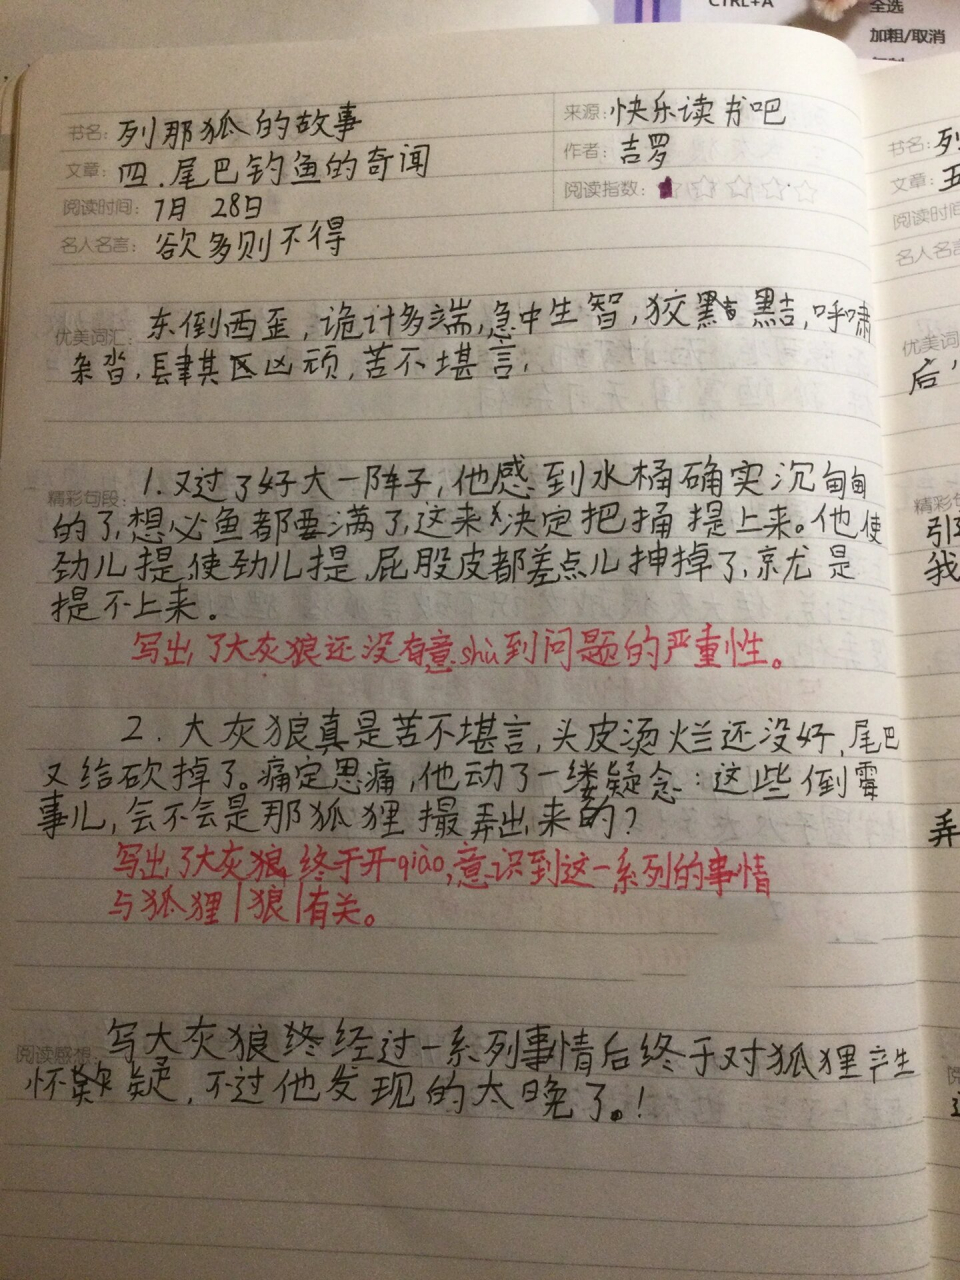 CTRL+A
全选
加粗/取消
书名: 列那狐的故事
来源: 快乐读书吧
文章: 四.尾巴钓鱼的奇闻
作者: 吉罗
阅读时间: 7月 28日
阅读指数:
名人名言: 欲多则不得
优美词汇: 东倒西歪,诡计多端,急中生智,狡黠 黠,呼啸
杂沓,肆其区凶顽,苦不堪言,
精彩句段: 1.又过了好大一阵子,他感到水桶确实沉甸甸
的了,想必鱼都要满了,这来决定把捅提上来。他使
劲儿提,使劲儿提,屁股皮都差点儿抻掉了,京尤是
提不上来。
写出了大灰狼还没有意shù到问题的严重性。
2.大灰狼真是苦不堪言,头皮烫烂还没好,尾巴
又给砍掉了。痛定思痛,他动了一缕疑念:这些倒霉
事儿,会不会是那狐狸撮弄出来的?
写出了大灰狼终于开qiào,意识到这一系列的事情
与狐狸|狼|有关。
阅读感想: 写大灰狼终经过一系列事情后终于对狐狸产生
怀疑,不过他发现的太晚了。!
书名: 列
文章: 五
阅读时间
名人名言
优美词
后,
精彩句
我
弄